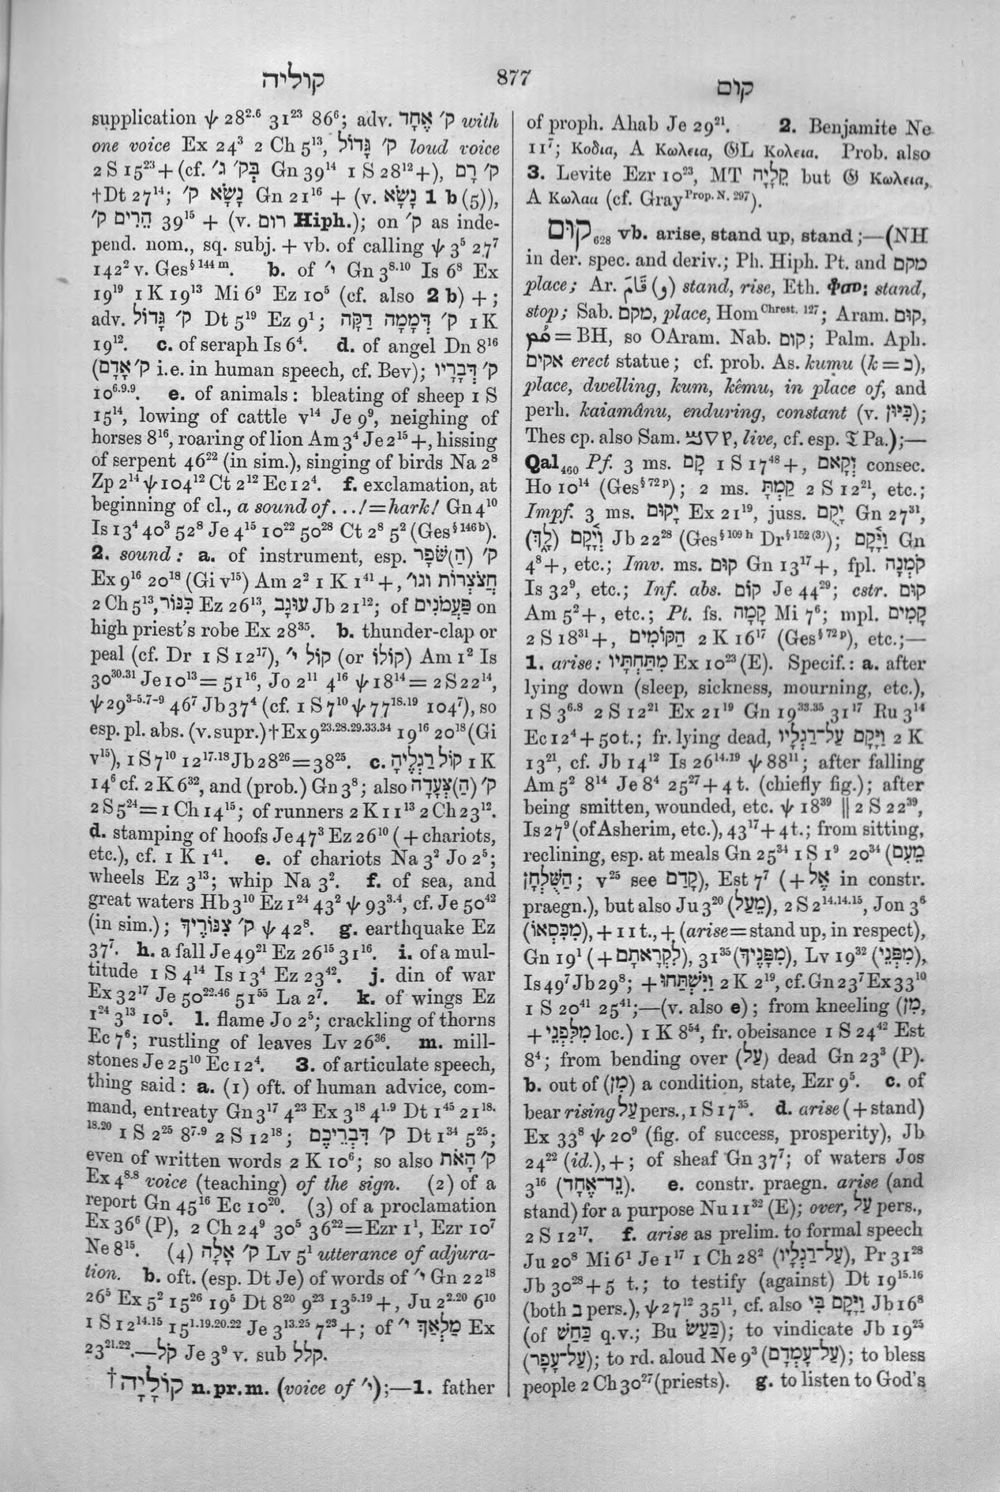 קוליה
877
קום
supplication ψ 28²·⁶ 31²³ 86⁶; adv. ק׳ אֶחָד with
one voice Ex 24³ 2 Ch 5¹³, ק׳ גָּדוֹל loud voice
2 S 15²³ + (cf. בְּק׳ ג׳ Gn 39¹⁴ 1 S 28¹²+), ק׳ רָם
†Dt 27¹⁴; נָשָׂא ק׳ Gn 21¹⁶ + (v. נָשָׂא 1 b (5)),
הֵרִים ק׳ 39¹⁵ + (v. רום Hiph.); on ק׳ as inde-
pend. nom., sq. subj. + vb. of calling ψ 3⁵ 27⁷
142² v. Ges§ 144 m. b. of י׳ Gn 3⁸·¹⁰ Is 6⁸ Ex
19¹⁹ 1 K 19¹³ Mi 6⁹ Ez 10⁵ (cf. also 2 b) + ;
adv. ק׳ גָּדוֹל Dt 5¹⁹ Ez 9¹; ק׳ דְּמָמָה דַקָּה 1 K
19¹². c. of seraph Is 6⁴. d. of angel Dn 8¹⁶
(ק׳ אָדָם i.e. in human speech, cf. Bev); ק׳ דְּבָרָיו
10⁶·⁹·⁹. e. of animals: bleating of sheep 1 S
15¹⁴, lowing of cattle v¹⁴ Je 9⁹, neighing of
horses 8¹⁶, roaring of lion Am 3⁴ Je 2¹⁵ +, hissing
of serpent 46²² (in sim.), singing of birds Na 2⁸
Zp 2¹⁴ ψ 104¹² Ct 2¹² Ec 12⁴. f. exclamation, at
beginning of cl., a sound of...!=hark! Gn 4¹⁰
Is 13⁴ 40³ 52⁸ Je 4¹⁵ 10²² 50²⁸ Ct 2⁸ 5² (Ges§ 146 b).
2. sound: a. of instrument, esp. ק׳ (הַ)שֹּׁפָר
Ex 9¹⁶ 20¹⁸ (Gi v¹⁵) Am 2² 1 K 1⁴¹ +, חֲצֹצְרוֹת וגו׳
2 Ch 5¹³, כִּנּוֹר Ez 26¹³, עוּגָב Jb 21¹²; of פַּעֲמֹנִים on
high priest's robe Ex 28³⁵. b. thunder-clap or
peal (cf. Dr 1 S 12¹⁷), קוֹל י׳ (or קוֹלוֹ) Am 1² Is
30³⁰·³¹ Je 10¹³ = 51¹⁶, Jo 2¹¹ 4¹⁶ ψ 18¹⁴ = 2 S 22¹⁴,
ψ 29³⁻⁵·⁷⁻⁹ 46⁷ Jb 37⁴ (cf. 1 S 7¹⁰ ψ 77¹⁸·¹⁹ 104⁷), so
esp. pl. abs. (v. supr.) †Ex 9²³·²⁸·²⁹·³³·³⁴ 19¹⁶ 20¹⁸ (Gi
v¹⁵), 1 S 7¹⁰ 12¹⁷·¹⁸ Jb 28²⁶ = 38²⁵. c. קוֹל רַגְלֶיהָ 1 K
14⁶ cf. 2 K 6³², and (prob.) Gn 3⁸; also ק׳ (הַ)צְּעָדָה
2 S 5²⁴ = 1 Ch 14¹⁵; of runners 2 K 11¹³ 2 Ch 23¹².
d. stamping of hoofs Je 47³ Ez 26¹⁰ (+ chariots,
etc.), cf. 1 K 1⁴¹. e. of chariots Na 3² Jo 2⁵;
wheels Ez 3¹³; whip Na 3². f. of sea, and
great waters Hb 3¹⁰ Ez 1²⁴ 43² ψ 93³·⁴, cf. Je 50⁴²
(in sim.); ק׳ צִנּוֹרֶיךָ ψ 42⁸. g. earthquake Ez
37⁷. h. a fall Je 49²¹ Ez 26¹⁵ 31¹⁶. i. of a mul-
titude 1 S 4¹⁴ Is 13⁴ Ez 23⁴². j. din of war
Ex 32¹⁷ Je 50²²·⁴⁶ 51⁵⁵ La 2⁷. k. of wings Ez
1²⁴ 3¹³ 10⁵. l. flame Jo 2⁵; crackling of thorns
Ec 7⁶; rustling of leaves Lv 26³⁶. m. mill-
stones Je 25¹⁰ Ec 12⁴. 3. of articulate speech,
thing said: a. (1) oft. of human advice, com-
mand, entreaty Gn 3¹⁷ 4²³ Ex 3¹⁸ 4¹·⁹ Dt 1⁴⁵ 21¹⁸·
¹⁸·²⁰ 1 S 2²⁵ 8⁷·⁹ 2 S 12¹⁸; ק׳ דִּבְרֵיכֶם Dt 1³⁴ 5²⁵;
even of written words 2 K 10⁶; so also ק׳ הָאֹת
Ex 4⁸·⁸ voice (teaching) of the sign. (2) of a
report Gn 45¹⁶ Ec 10²⁰. (3) of a proclamation
Ex 36⁶ (P), 2 Ch 24⁹ 30⁵ 36²² = Ezr 1¹, Ezr 10⁷
Ne 8¹⁵. (4) ק׳ אָלָה Lv 5¹ utterance of adjura-
tion. b. oft. (esp. Dt Je) of words of י׳ Gn 22¹⁸
26⁵ Ex 5² 15²⁶ 19⁵ Dt 8²⁰ 9²³ 13⁵·¹⁹ +, Ju 2²·²⁰ 6¹⁰
1 S 12¹⁴·¹⁵ 15¹·¹⁹·²⁰·²² Je 3¹³·²⁵ 7²³ + ; of מַלְאַךְ י׳ Ex
23²¹·²².—קֹל Je 3⁹ v. sub קלל.
† קוֹלָיָה n.pr.m. (voice of י׳);—1. father
of proph. Ahab Je 29²¹. 2. Benjamite Ne
11⁷; Κοδια, A Κωλεια, 𝔊L Κολεια. Prob. also
3. Levite Ezr 10²³, MT קֵלָיָה but 𝔊 Κωλεια,
A Κωλαα (cf. Gray Prop. N. 297).
קוּם₆₂₈ vb. arise, stand up, stand;—(NH
in der. spec. and deriv.; Ph. Hiph. Pt. and מקם
place; Ar. قَامَ (و) stand, rise, Eth. ቆመ: stand,
stop; Sab. מקם, place, Hom Chrest. 127; Aram. קום,
ܩܳܡ = BH, so OAram. Nab. קום; Palm. Aph.
אקים erect statue; cf. prob. As. kumu (k = כ),
place, dwelling, kum, kêmu, in place of, and
perh. kaiamânu, enduring, constant (v. כִּיּוּן);
Thes cp. also Sam. live, cf. esp. 𝔗 Pa.);—
Qal₄₆₀ Pf. 3 ms. קָם 1 S 17⁴⁸ +, וְקָאם consec.
Ho 10¹⁴ (Ges§ 72 p); 2 ms. קַמְתָּ 2 S 12²¹, etc.;
Impf. 3 ms. יָקוּם Ex 21¹⁹, juss. יָקֻם Gn 27³¹,
וְיָקֻם (לָךְ) Jb 22²⁸ (Ges§ 109 h Dr§ 152 (3)); וַיָּקָם Gn
4⁸ +, etc.; Imv. ms. קוּם Gn 13¹⁷ +, fpl. קֹמְנָה
Is 32⁹, etc.; Inf. abs. קוֹם Je 44²⁹; cstr. קוּם
Am 5² +, etc.; Pt. fs. קָמָה Mi 7⁶; mpl. קָמִים
2 S 18³¹ +, הַקּוֹמִים 2 K 16¹⁷ (Ges§ 72 p), etc.;—
1. arise: מִתַּחְתָּיו Ex 10²³ (E). Specif.: a. after
lying down (sleep, sickness, mourning, etc.),
1 S 3⁶·⁸ 2 S 12²¹ Ex 21¹⁹ Gn 19³³·³⁵ 31¹⁷ Ru 3¹⁴
Ec 12⁴ + 50 t.; fr. lying dead, וַיָּקָם עַל־רַגְלָיו 2 K
13²¹, cf. Jb 14¹² Is 26¹⁴·¹⁹ ψ 88¹¹; after falling
Am 5² 8¹⁴ Je 8⁴ 25²⁷ + 4 t. (chiefly fig.); after
being smitten, wounded, etc. ψ 18³⁹ ‖ 2 S 22³⁹,
Is 27⁹ (of Asherim, etc.), 43¹⁷ + 4 t.; from sitting,
reclining, esp. at meals Gn 25³⁴ 1 S 1⁹ 20³⁴ (מֵעִם
הַשֻּׁלְחָן; v²⁵ see קָדַם), Est 7⁷ (+ אֶל in constr.
praegn.), but also Ju 3²⁰ (מֵעַל), 2 S 2¹⁴·¹⁴·¹⁵, Jon 3⁶
(מִכִּסְאוֹ), + 11 t., + (arise = stand up, in respect),
Gn 19¹ (+ לִקְרָאתָם), 31³⁵ (מִפָּנֶיךָ), Lv 19³² (מִפְּנֵי),
Is 49⁷ Jb 29⁸; + וַיִּשְׁתַּחוּ 2 K 2¹⁹, cf. Gn 23⁷ Ex 33¹⁰
1 S 20⁴¹ 25⁴¹;—(v. also e); from kneeling (מִן,
+ מִלִּפְנֵי loc.) 1 K 8⁵⁴, fr. obeisance 1 S 24⁴² Est
8⁴; from bending over (עַל) dead Gn 23³ (P).
b. out of (מִן) a condition, state, Ezr 9⁵. c. of
bear rising עַל pers., 1 S 17³⁵. d. arise (+ stand)
Ex 33⁸ ψ 20⁹ (fig. of success, prosperity), Jb
24²² (id.), + ; of sheaf Gn 37⁷; of waters Jos
3¹⁶ (נֵד־אֶחָד). e. constr. praegn. arise (and
stand) for a purpose Nu 11³² (E); over, עַל pers.,
2 S 12¹⁷. f. arise as prelim. to formal speech
Ju 20⁸ Mi 6¹ Je 1¹⁷ 1 Ch 28² (עַל־רַגְלָיו), Pr 31²⁸
Jb 30²⁸ + 5 t.; to testify (against) Dt 19¹⁵·¹⁶
(both ב pers.), ψ 27¹² 35¹¹, cf. also וַיָּקָם בִּי Jb 16⁸
(of כַּחַשׁ q.v.; Bu כַּעַשׂ); to vindicate Jb 19²⁵
(עַל־עָפָר); to rd. aloud Ne 9³ (עַל־עָמְדָם); to bless
people 2 Ch 30²⁷ (priests). g. to listen to God's